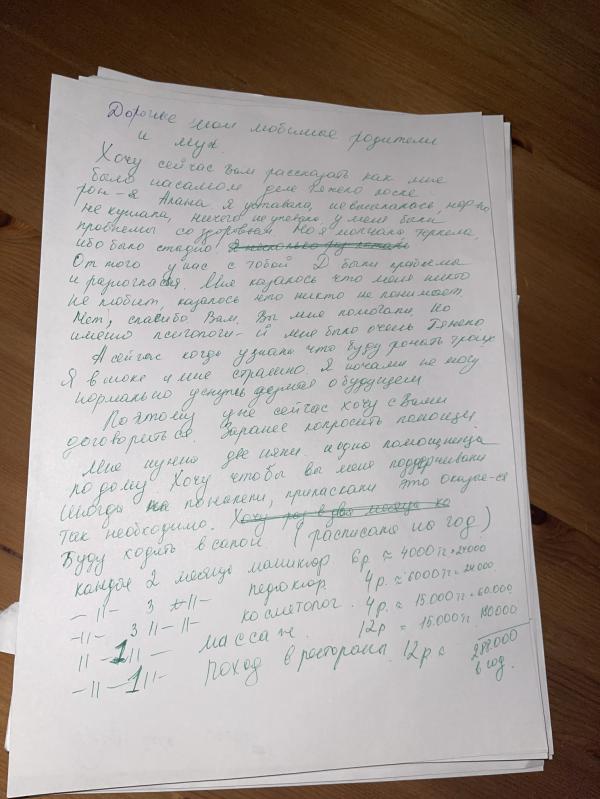 Дорогие мои любимые родители
и муж.
Хочу сейчас Вам рассказать как мне
было на самом деле тяжело после
рож-я Алана. Я уставала, не высыпалась,
не кушала, ничего не успевала, у меня были
проблемы со здоровьем. Но я молчала, терпела,
ибо было стыдно.
От того у нас с тобой Д были проблемы
и разногласия. Мне казалось что меня никто
не любит, казалось что никто не понимает.
Нет, спасибо Вам, Вы мне помогали. Но
именно психологи-й мне было очень тяжело.
А сейчас когда узнала что буду рожать троих
Я в шоке и мне страшно. Я ночами не могу
нормально уснуть думая о будущем
Поэтому уже сейчас хочу с Вами
договориться. Заранее попросить помощи.
Мне нужно две няни и одна помощница
по дому. Хочу чтобы вы меня поддерживали
Иногда пожалели, приласкали это
так необходимо. Хочу раз в два месяца
Буду ходить в салон. (расписала на год)
каждые 2 месяца маникюр 6р ≈ 4000тг = 24000
-11- 3 -11- педикюр 4р. ≈ 6000тг = 24000
-11- 3 11-11- косметолог. 4р. ≈ 15.000тг = 60.000
11 - 1 11 - массаж. 12р = 15.000тг. 180000
-11-1 11- Поход в рестораны 12р ≈ 288.000
в год.